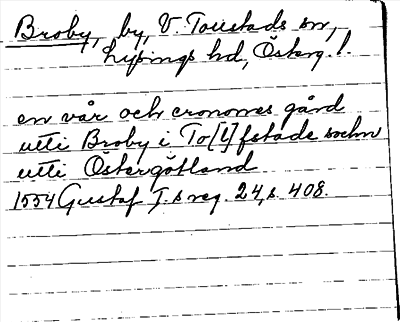 Broby, by, V. Toustads sn,
Lysings hd, Österg. l.
en vår och cronones gård
utti Broby i To[l]fstade sochn
utti Östergötland
1554 Gustaf I.s reg. 24, s. 408.